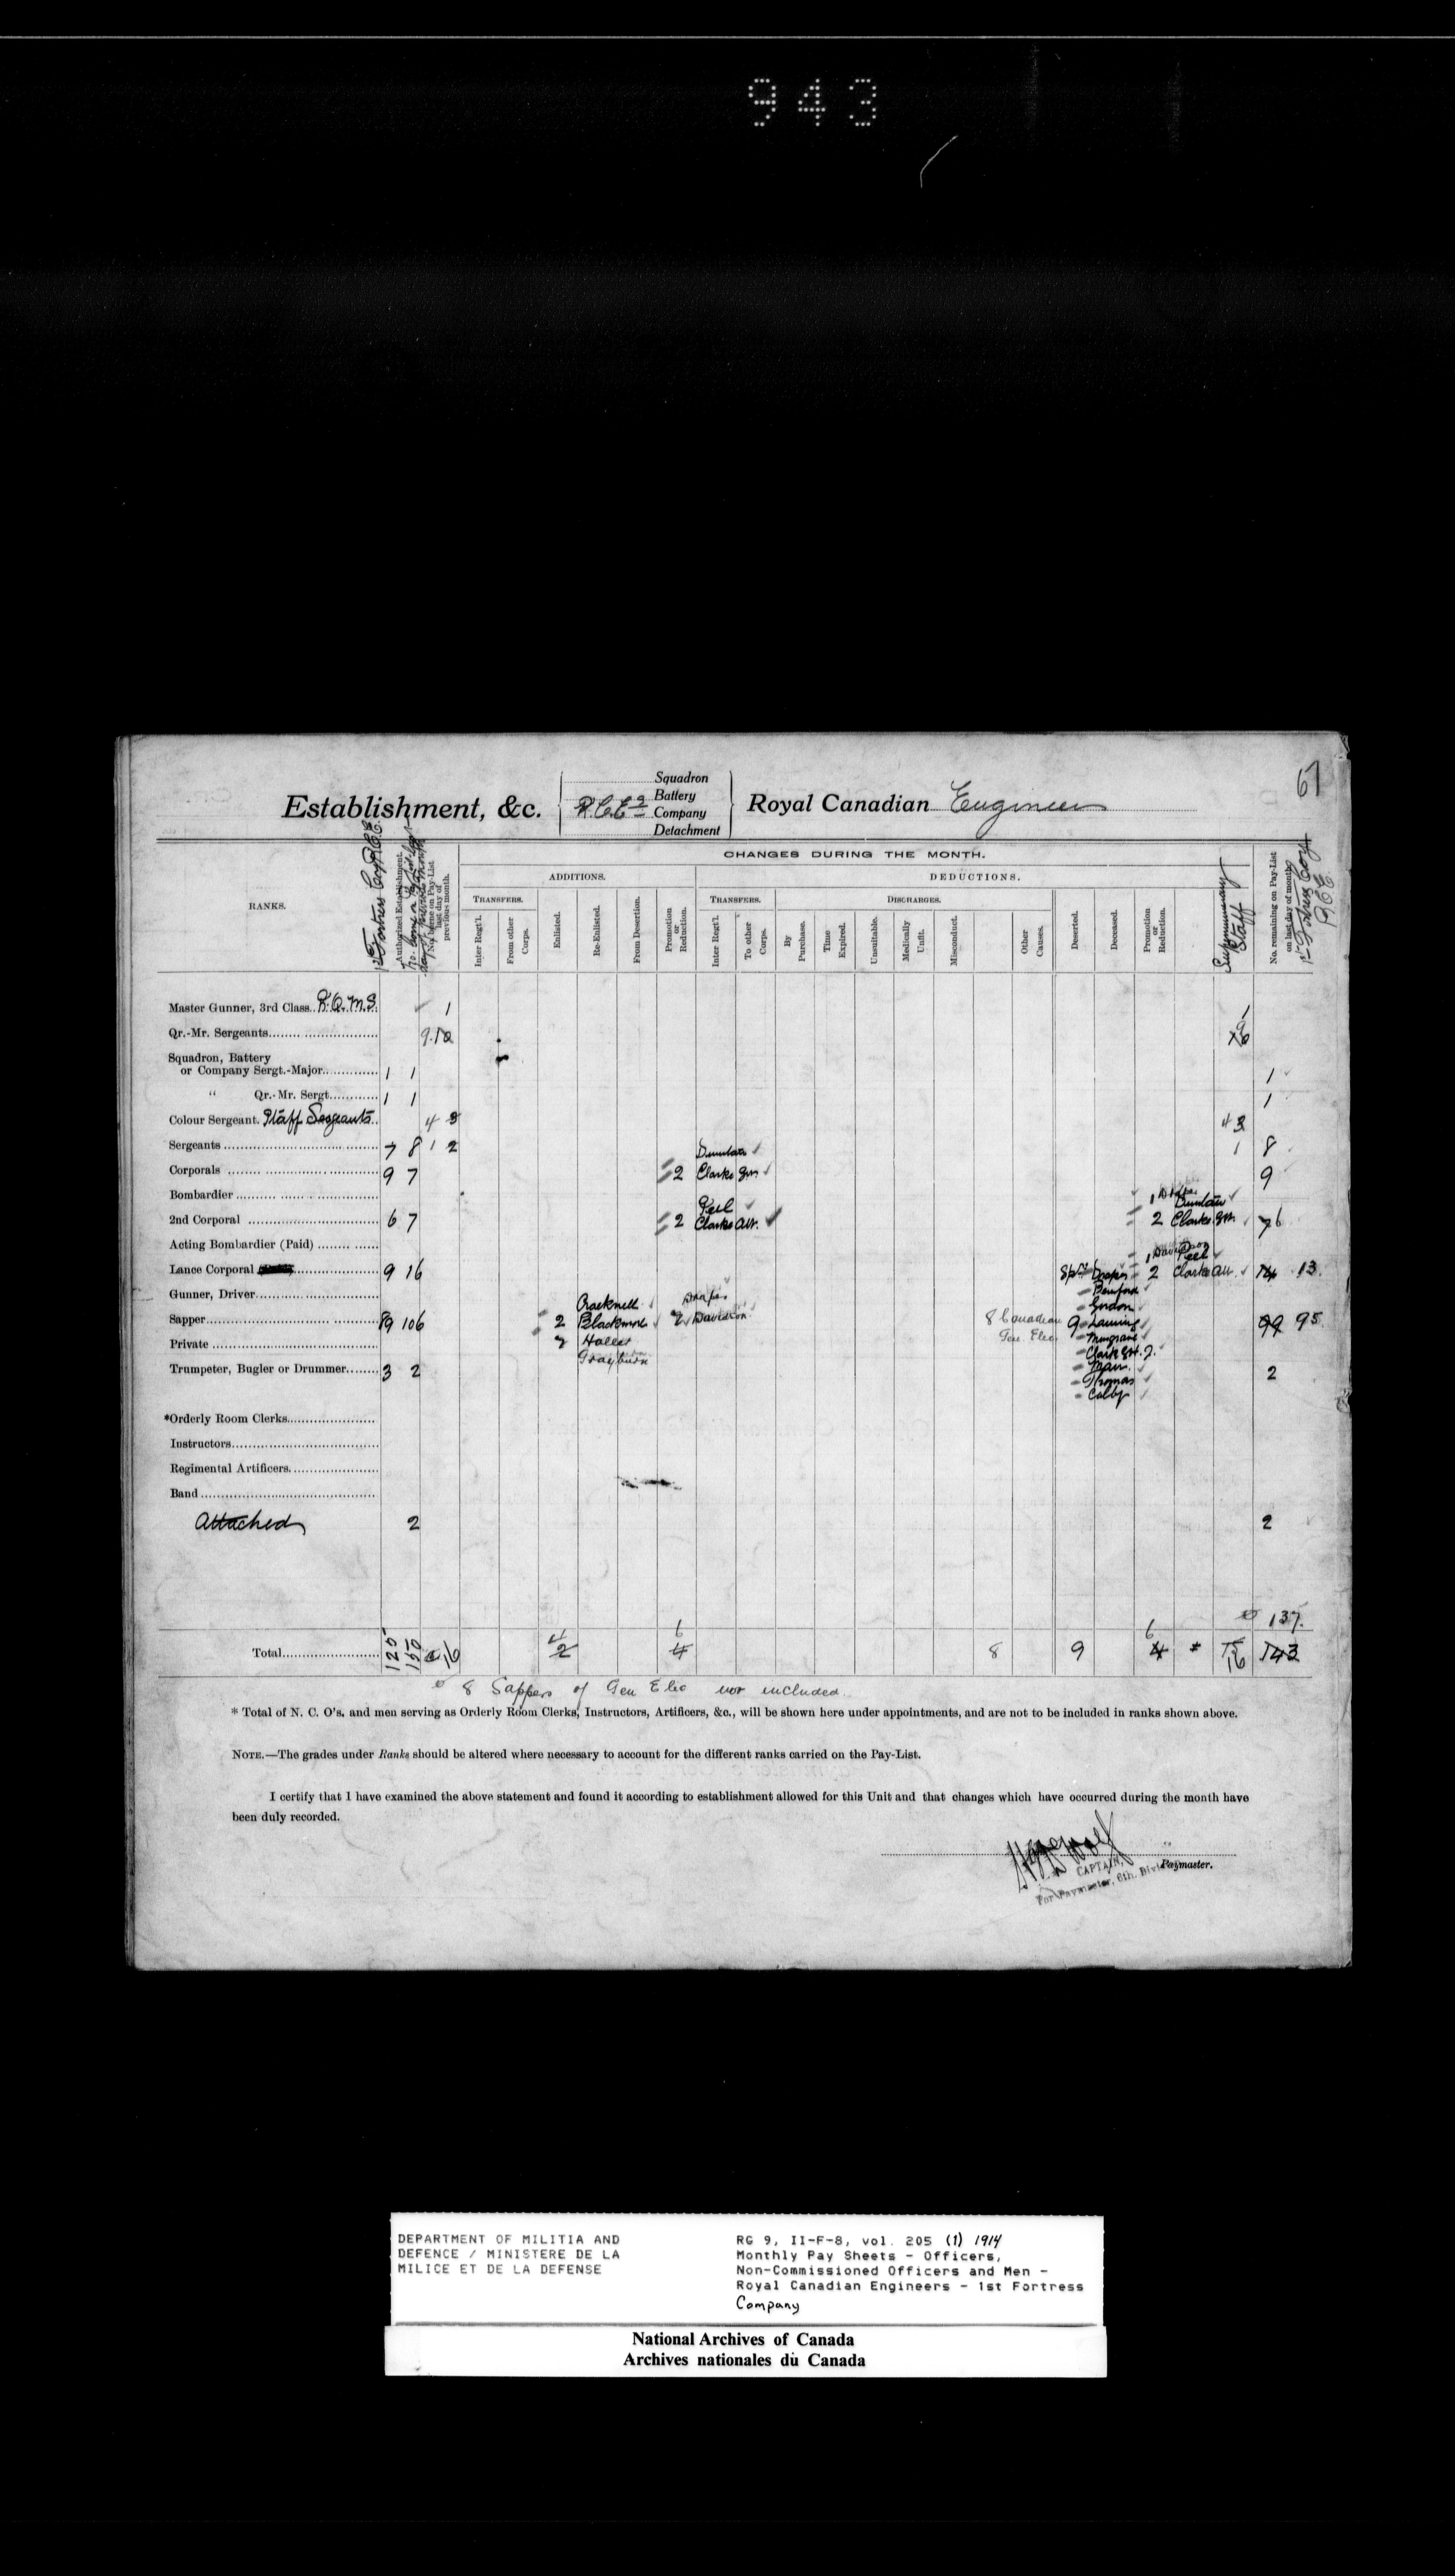 943
67
Establishment, &c.
Squadron
Battery
Company
Detachment
Royal Canadian Engineers
RANKS.
1st Fortress Coy R.C.E.
Authorized Establishment.
No. borne on Pay-List
last day of
previous month.
CHANGES DURING THE MONTH.
ADDITIONS.
DEDUCTIONS.
TRANSFERS.
Inter Regt'l.
From other Corps.
Enlisted.
Re-Enlisted.
From Desertion.
Promotion or Reduction.
TRANSFERS.
Inter Regt'l.
To other Corps.
DISCHARGES.
By Purchase.
Time Expired.
Unsuitable.
Medically Unfit.
Misconduct.
Other Causes.
Deserted.
Deceased.
Promotion or Reduction.
Supernumerary Staff
No. remaining on Pay-List
on last day of month
1st Fortress Coy
RCE
Master Gunner, 3rd Class. R.Q.M.S. 1 1
Qr.-Mr. Sergeants 9 10 9
Squadron, Battery
or Company Sergt.-Major 1 1 1
" Qr.-Mr. Sergt. 1 1 1
Colour Sergeant. Staff Sergeants 4 3 4 3
Sergeants 7 8 1 2 1 8
Corporals 9 7 2 Clarke 9
Bombardier
2nd Corporal 6 7 2 Peel Clarke 2 Clarke 7 6
Acting Bombardier (Paid)
Lance Corporal 9 16 Draper 2 Peel Clarke 14 13
Gunner, Driver
Sapper 89 106 2 Cracknell Blackmore 2 Draper Davidson 8 Canadian Gen Elec 9 99 95
Gordon
Lanning
Musgrave
Private 2 Haller
Grayburn
Clark
Trumpeter, Bugler or Drummer 3 2 2
Thomas
*Orderly Room Clerks
Instructors
Regimental Artificers
Band
Attached 2 2
137
Total 125 150 16 4 2 6 4 8 9 6 4 15 16 143
8 Sappers of Gen Elec not included
* Total of N. C. O's. and men serving as Orderly Room Clerks, Instructors, Artificers, &c., will be shown here under appointments, and are not to be included in ranks shown above.
NOTE.—The grades under Ranks should be altered where necessary to account for the different ranks carried on the Pay-List.
I certify that I have examined the above statement and found it according to establishment allowed for this Unit and that changes which have occurred during the month have
been duly recorded.
CAPTAIN,
Paymaster.
For Paymaster, 6th. Division
DEPARTMENT OF MILITIA AND
DEFENCE / MINISTERE DE LA
MILICE ET DE LA DEFENSE
RG 9, II-F-8, vol. 205 (1) 1914
Monthly Pay Sheets - Officers,
Non-Commissioned Officers and Men -
Royal Canadian Engineers - 1st Fortress
Company
National Archives of Canada
Archives nationales du Canada